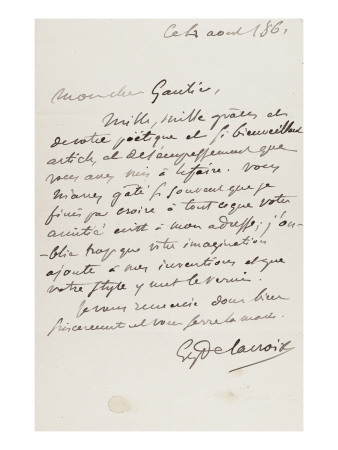 Ce 4 aout 1861
Mon cher Gautier,
Mille, mille grâces et
de votre poëtique et si bienveillant
article et de l'empressement que
vous avez mis à le faire. Vous
m'avez gâté si souvent que je
finis par croire à tout ce que votre
amitié écrit à mon adresse; j'ou-
-blie trop que votre imagination
ajoute à mes inventions et que
votre style y met le vernis.
Je vous remercie donc bien
sincèrement et vous serre la main.
Eug Delacroix